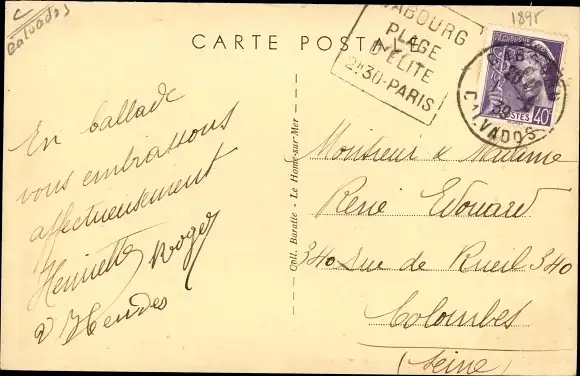 C
Calvados
1895
CARTE POSTALE
CABOURG
PLAGE
D'ÉLITE
2H30-PARIS
POSTES 40
CALVADOS
En ballade
vous embrassons
affectueusement
Henriette Roger
Coll. Baratte - Le Home-sur-Mer
Monsieur & Madame
René Edouard
340 rue de Rueil 340
Colombes
(Seine)